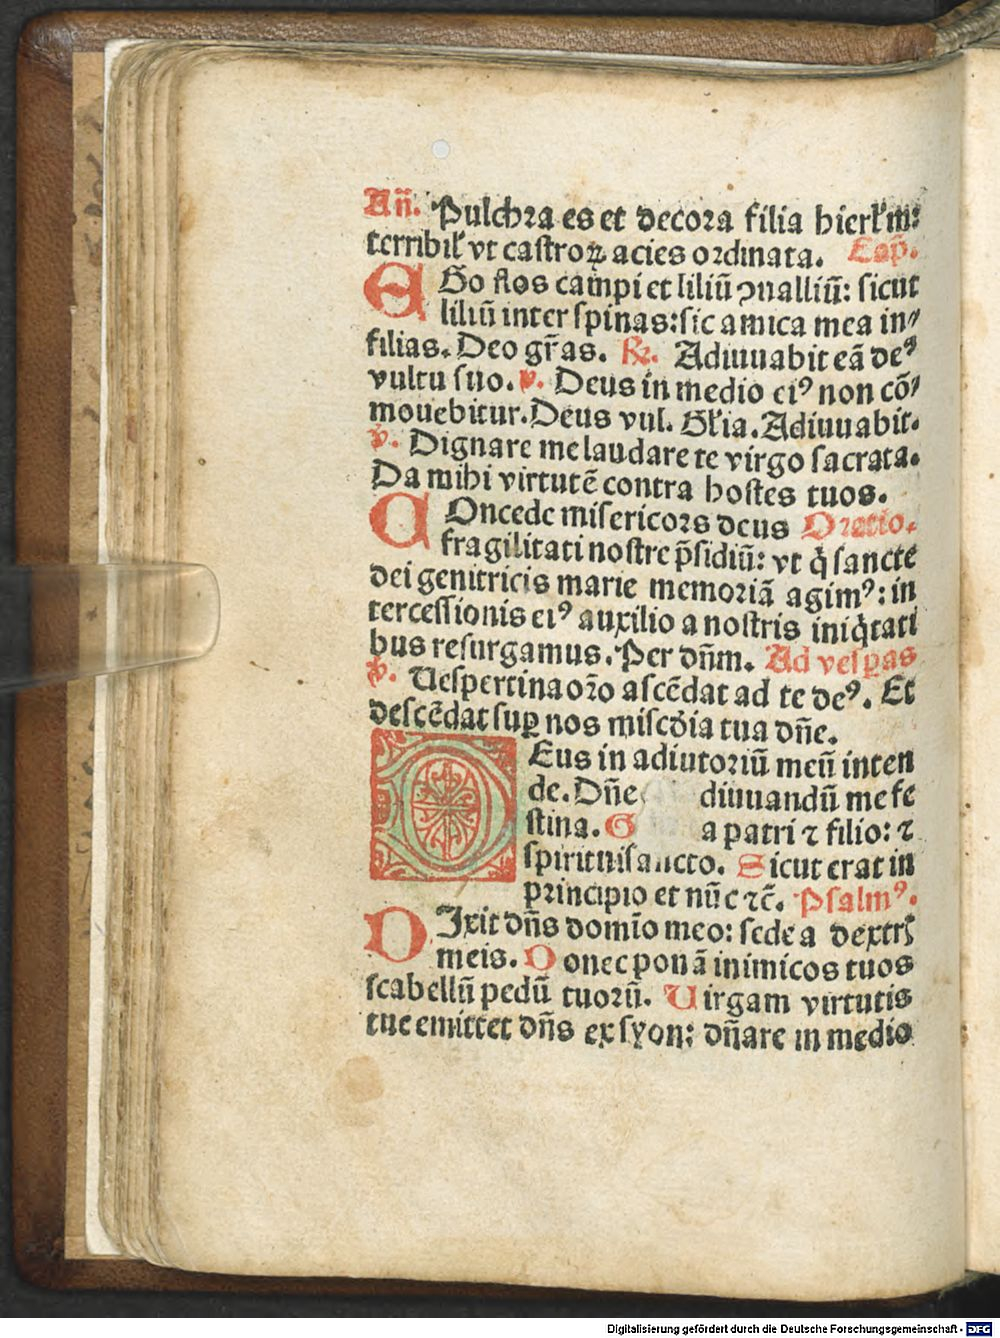 Añ. Pulchra es et decora filia hierl̃m:
terribil̃ vt castroꝝ acies ordinata. Cap̃.
EGo flos campi et liliũ ꝯualliũ: sicut
liliũ inter spinas: sic amica mea in
filias. Deo gr̃as. ℟. Adiuuabit eã deꝰ
vultu suo. ℣. Deus in medio eiꝰ non cõ
mouebitur. Deus vul. Gl̃ia. Adiuuabit.
℣. Dignare me laudare te virgo sacrata.
Da mihi virtutẽ contra hostes tuos.
COncede misericors deus Oratio.
fragilitati nostre p̃sidiũ: vt q̃ sancte
dei genitricis marie memoriã agimꝰ: in
tercessionis eiꝰ auxilio a nostris iniq̃tati
bus resurgamus. Per dñm. Ad vesꝑas
℣. Uespertina or̃o ascẽdat ad te deꝰ. Et
descẽdat suꝑ nos misc̃dia tua dñe.
DEus in adiutoriũ meũ inten
de. Dñe diuuandũ me fe
stina. G a patri ⁊ filio: ⁊
spiritui sancto. Sicut erat in
principio et nũc ⁊c̃. Psalmꝰ.
DIxit dñs domĩo meo: sede a dextr̃
meis. Donec ponã inimicos tuos
scabellũ pedũ tuorũ. Uirgam virtutis
tue emittet dñs ex syon: dñare in medio
Digitalisierung gefördert durch die Deutsche Forschungsgemeinschaft - DFG